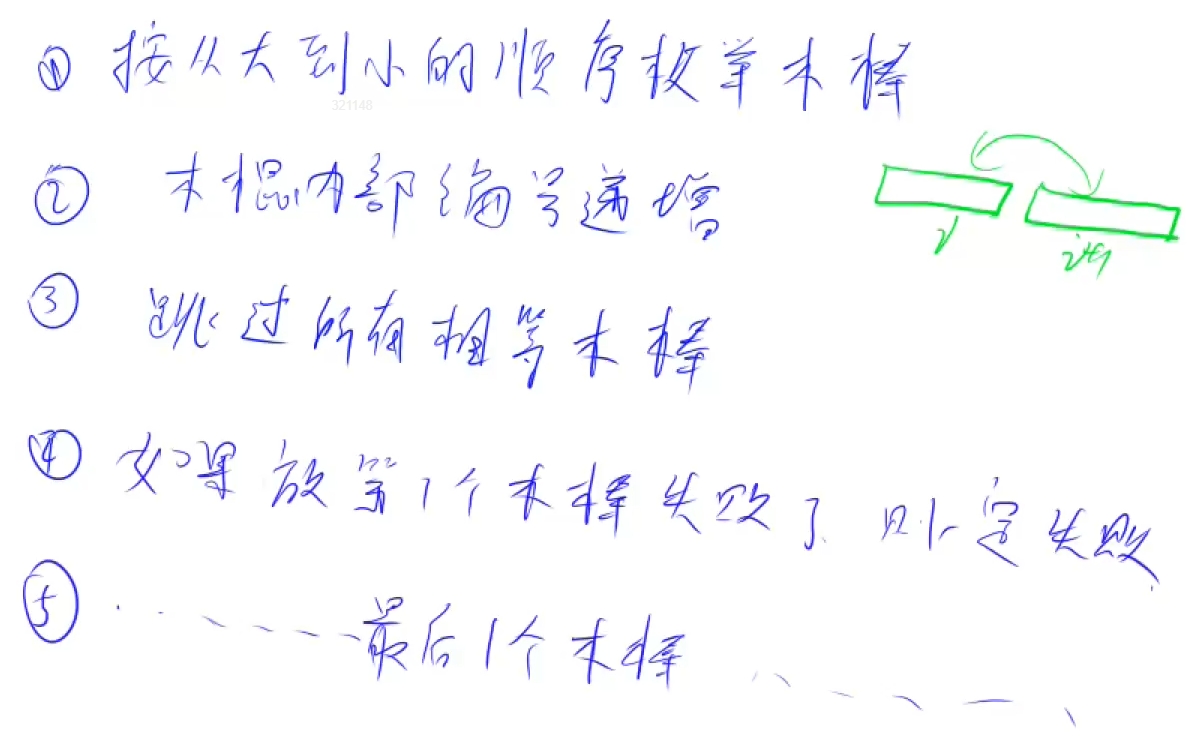 ① 按从大到小的顺序枚举木棒
321148
② 木棍内部编号递增
i i+1
③ 跳过所有相等木棒
④ 如果放第1个木棒失败了 则一定失败
⑤ ······最后1个木棒······